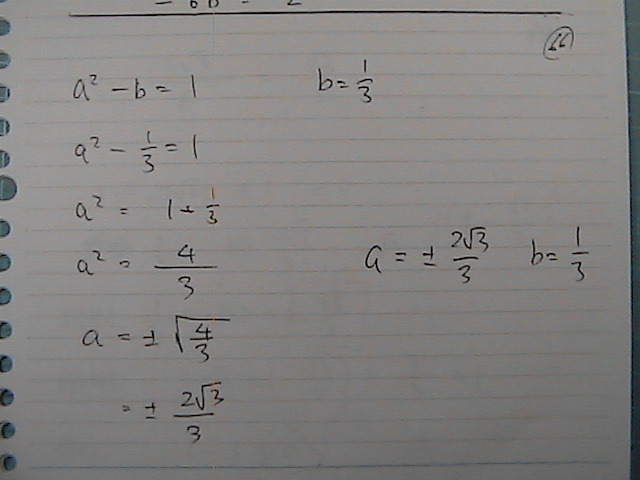 66
a² - b = 1 b = 1/3
a² - 1/3 = 1
a² = 1 + 1/3
a² = 4/3
a = ± 2√3/3 b = 1/3
a = ± √(4/3)
= ± 2√3/3